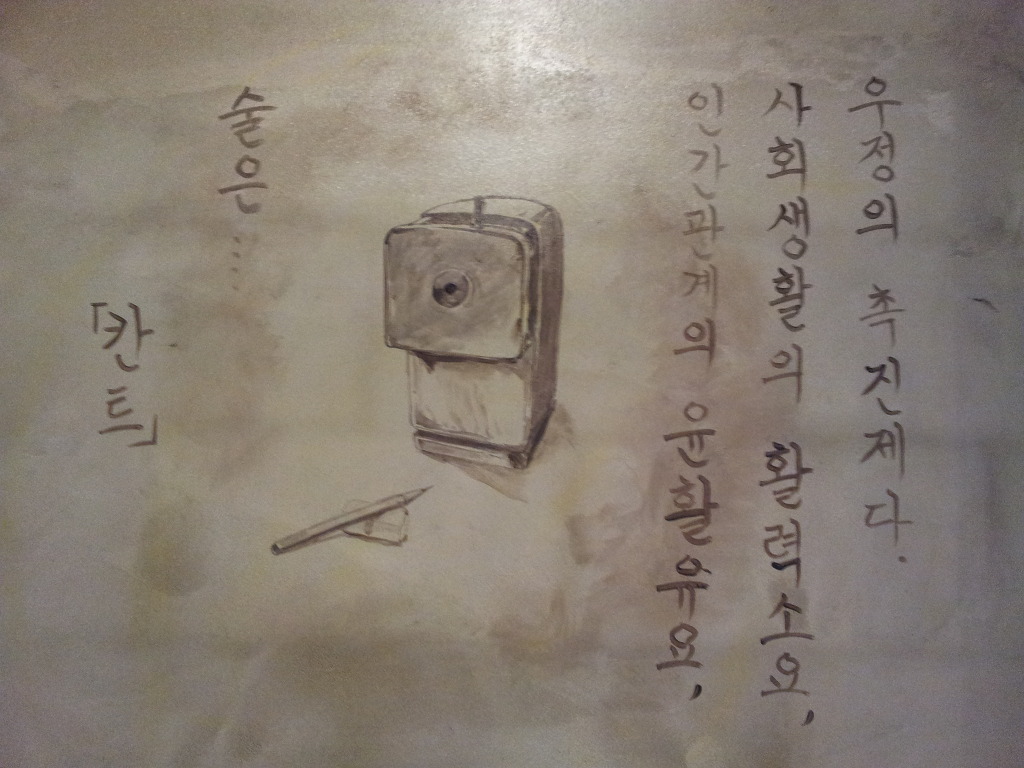 「칸트」
술은...
인간관계의 윤활유요,
사회생활의 활력소요,
우정의 촉진제다.